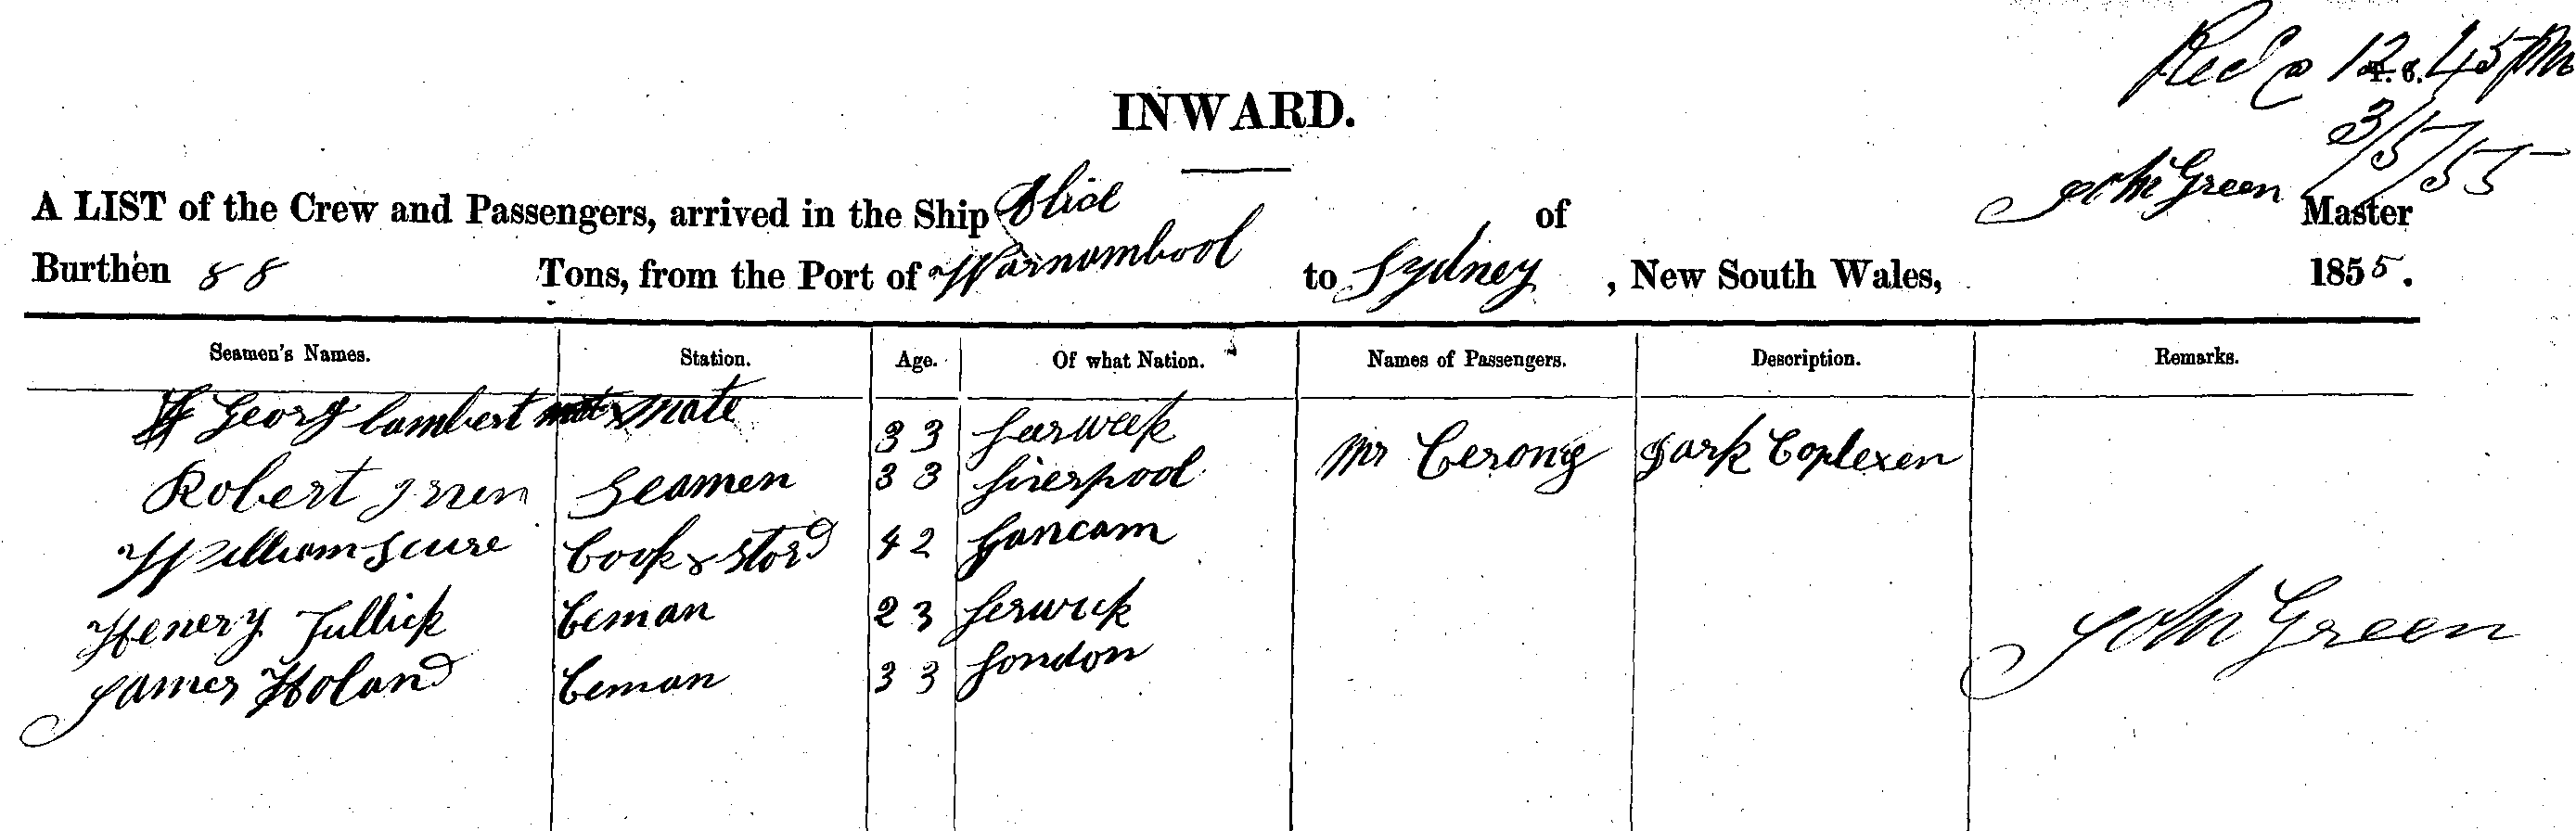 Recd @ 12.45 PM
3/5/55
INWARD.
A LIST of the Crew and Passengers, arrived in the Ship Alice of John Green Master
Burthen 88 Tons, from the Port of Warnambool to Sydney, New South Wales, 1855.
Seamen's Names. Station. Age. Of what Nation. Names of Passengers. Description. Remarks.
Georg Lambert mate 33
Robert Green Seamen 33 Liverpool Mr Cerong Dark Coplexen
William Cook & Stord 42
Henery Tullick Ceman 23 Lerwick
James Holand Ceman 33 London
John Green